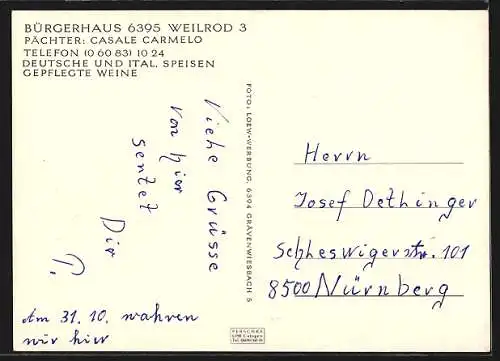 BÜRGERHAUS 6395 WEILROD 3
PÄCHTER: CASALE CARMELO
TELEFON (0 60 83) 10 24
DEUTSCHE UND ITAL. SPEISEN
GEPFLEGTE WEINE
Viehe Grüsse
von hier
sentet
Dir
P.
Am 31. 10. wahren
wir hier
FOTO: LOEW-WERBUNG, 6394 GRÄVENWIESBACH 5
Herrn
Josef Dethinger
Schleswigerstr. 101
8500 Nürnberg